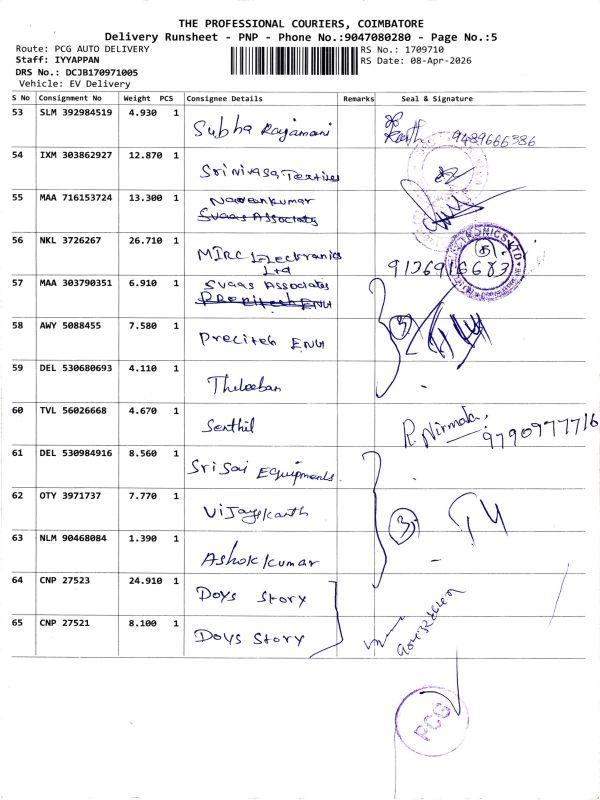 THE PROFESSIONAL COURIERS, COIMBATORE
Delivery Runsheet - PNP - Phone No.:9047080280 - Page No.:5
Route: PCG AUTO DELIVERY
RS No.: 1709710
Staff: IYYAPPAN
RS Date: 08-Apr-2026
DRS No.: DCJB170971005
Vehicle: EV Delivery
S No Consignment No Weight PCS Consignee Details Remarks Seal & Signature
53 SLM 392984519 4.930 1 Subha Rajamani 9489666386
54 IXM 303862927 12.870 1 Srinivasa Textiles
55 MAA 716153724 13.300 1 Naveenkumar
Svaas Associats
56 NKL 3726267 26.710 1 MIRC Electronics
Ltd
9126916683
57 MAA 303790351 6.910 1 Svaas Associates
58 AWY 5088455 7.580 1 Precitech ENGI
3
59 DEL 530680693 4.110 1
60 TVL 56026668 4.670 1 Senthil R. Nirmala, 9790977716
61 DEL 530984916 8.560 1 Sri Sai Equipments
62 OTY 3971737 7.770 1 Vijaykanth
3
63 NLM 90468084 1.390 1 Ashokkumar
64 CNP 27523 24.910 1 Doys Story
65 CNP 27521 8.100 1 Doys Story
PCG